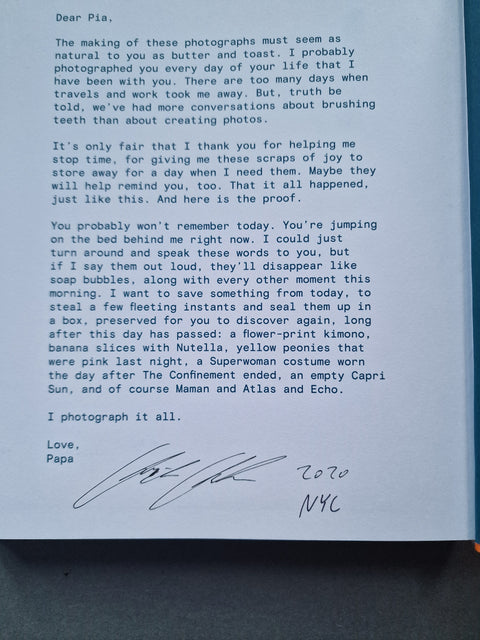 Dear Pia,
The making of these photographs must seem as
natural to you as butter and toast. I probably
photographed you every day of your life that I
have been with you. There are too many days when
travels and work took me away. But, truth be
told, we've had more conversations about brushing
teeth than about creating photos.
It's only fair that I thank you for helping me
stop time, for giving me these scraps of joy to
store away for a day when I need them. Maybe they
will help remind you, too. That it all happened,
just like this. And here is the proof.
You probably won't remember today. You're jumping
on the bed behind me right now. I could just
turn around and speak these words to you, but
if I say them out loud, they'll disappear like
soap bubbles, along with every other moment this
morning. I want to save something from today, to
steal a few fleeting instants and seal them up in
a box, preserved for you to discover again, long
after this day has passed: a flower-print kimono,
banana slices with Nutella, yellow peonies that
were pink last night, a Superwoman costume worn
the day after The Confinement ended, an empty Capri
Sun, and of course Maman and Atlas and Echo.
I photograph it all.
Love,
Papa
2020
NYC